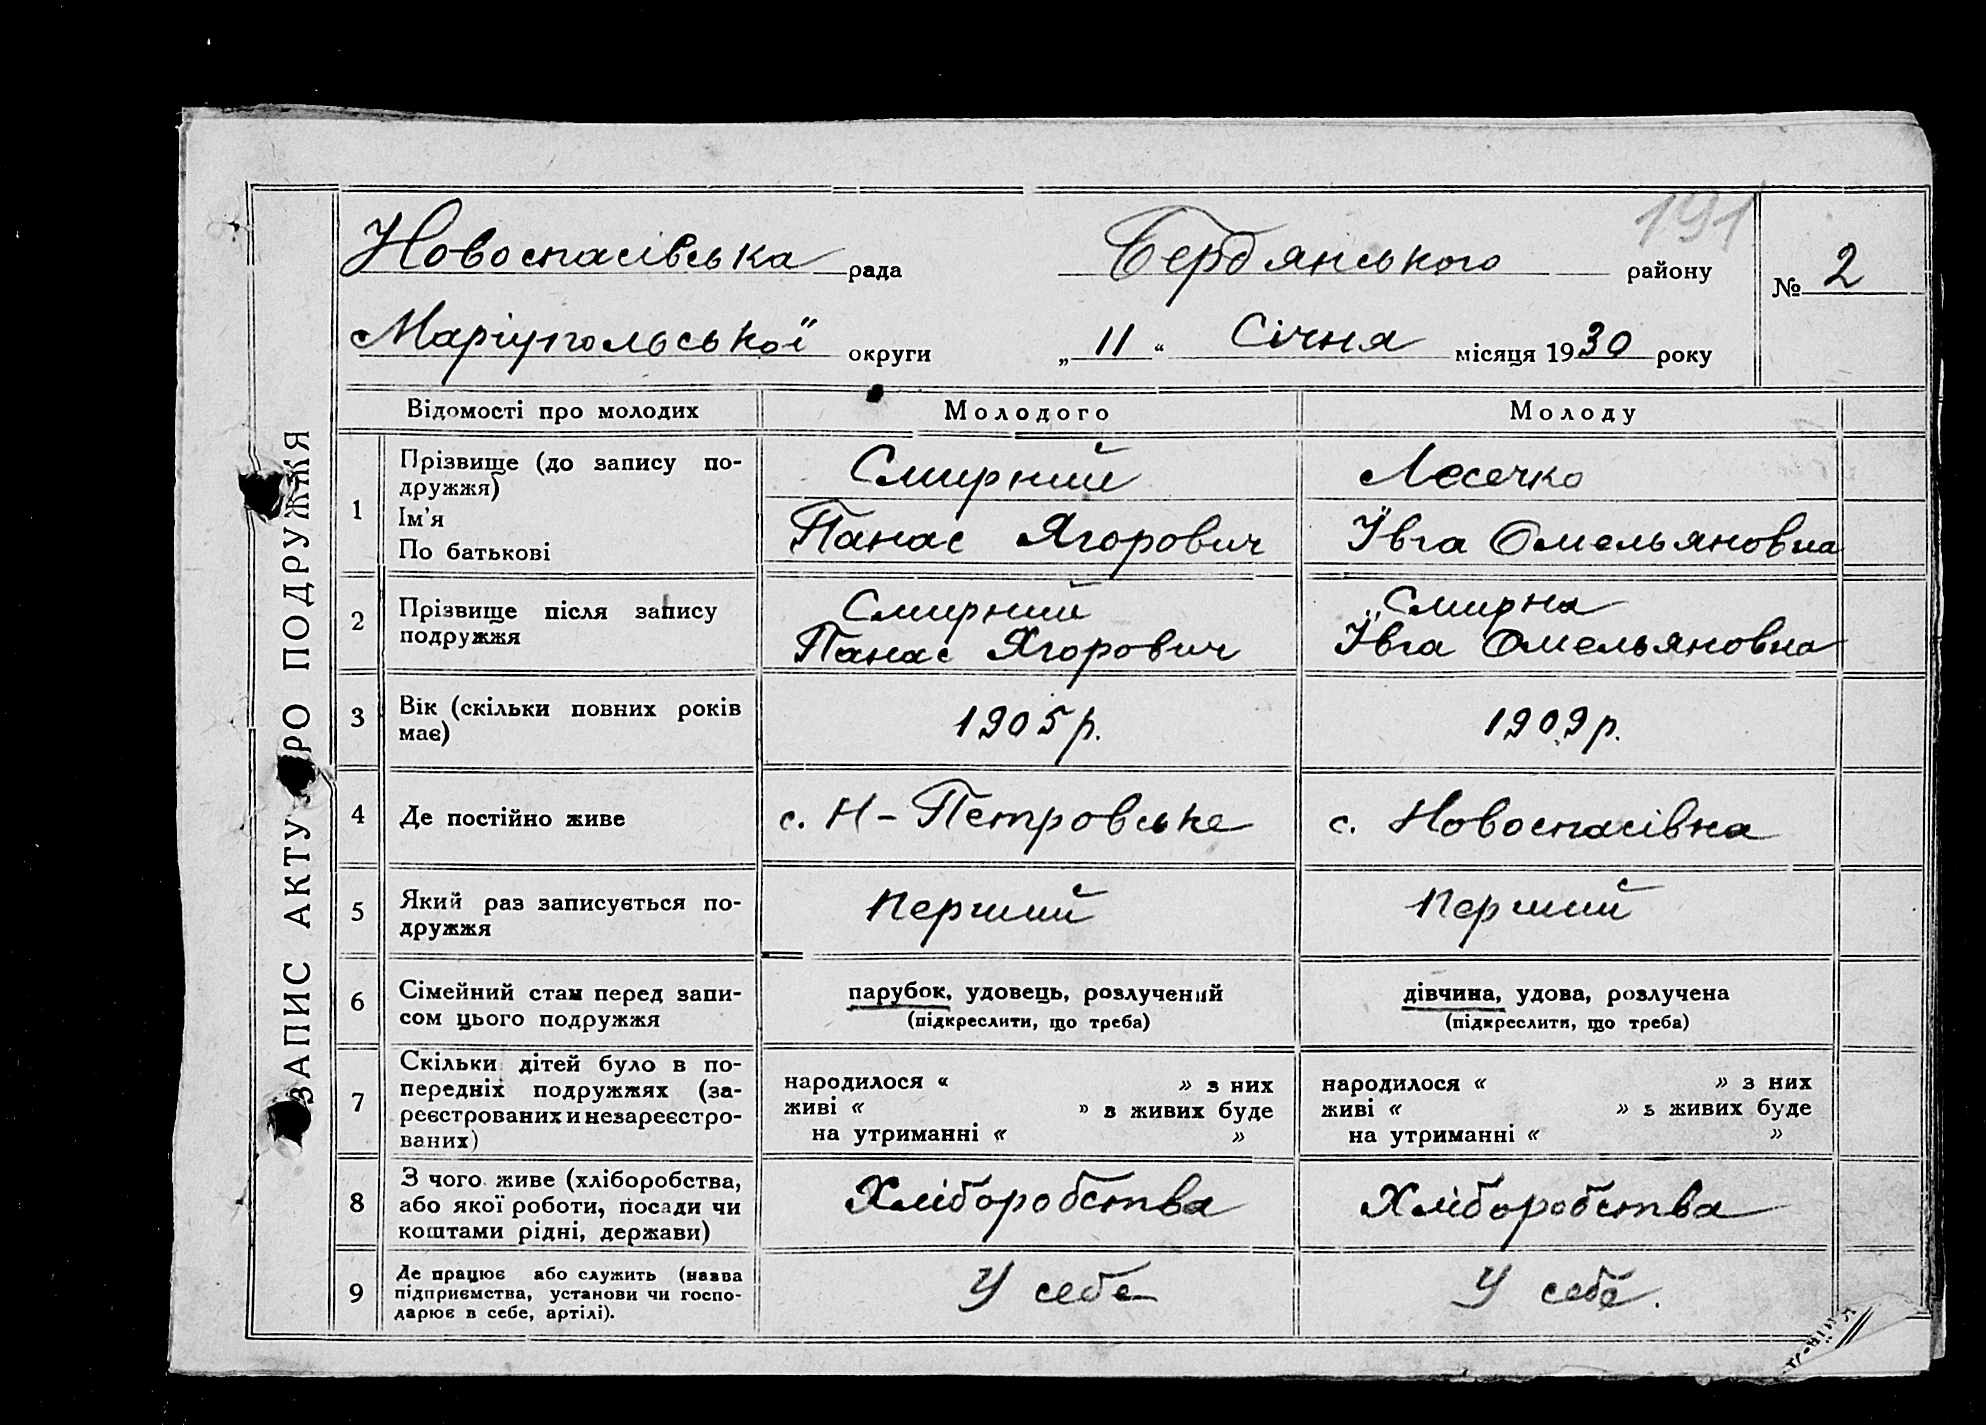 191
Новоспасівська рада Бердянського району № 2
Маріупольської округи „ 11 “ Січня місяця 1930 року
ЗАПИС АКТУ ПРО ПОДРУЖЖЯ
Відомості про молодих Молодого Молоду
1 Прізвище (до запису по-
дружжя)
Ім'я
По батькові
Смирний
Панас Ягорович
Лесечко
Ївга Омельяновна
2 Прізвище після запису
подружжя
Смирний
Панас Ягорович
Смирна
Ївга Омельяновна
3 Вік (скільки повних років
має)
1905 р.
1909 р.
4 Де постійно живе
с. Н-Петровське
с. Новоспасівка
5 Який раз записується по-
дружжя
перший
перший
6 Сімейний стан перед запи-
сом цього подружжя
парубок, удовець, розлучений
(підкреслити, що треба)
дівчина, удова, розлучена
(підкреслити, що треба)
7 Скільки дітей було в по-
передніх подружжях (за-
реєстрованих и незареєстро-
ваних)
народилося « » з них
живі « » з живих буде
на утриманні « »
народилося « » з них
живі « » з живих буде
на утриманні « »
8 З чого живе (хліборобства,
або якої роботи, посади чи
коштами рідні, держави)
Хліборобства
Хліборобства
9 Де працює або служить (назва
підприємства, установи чи госпо-
дарює в себе, артілі).
У себе
У себе.